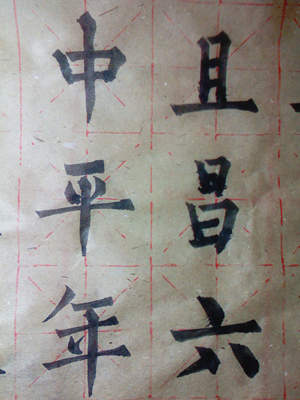 且昌六
中平年